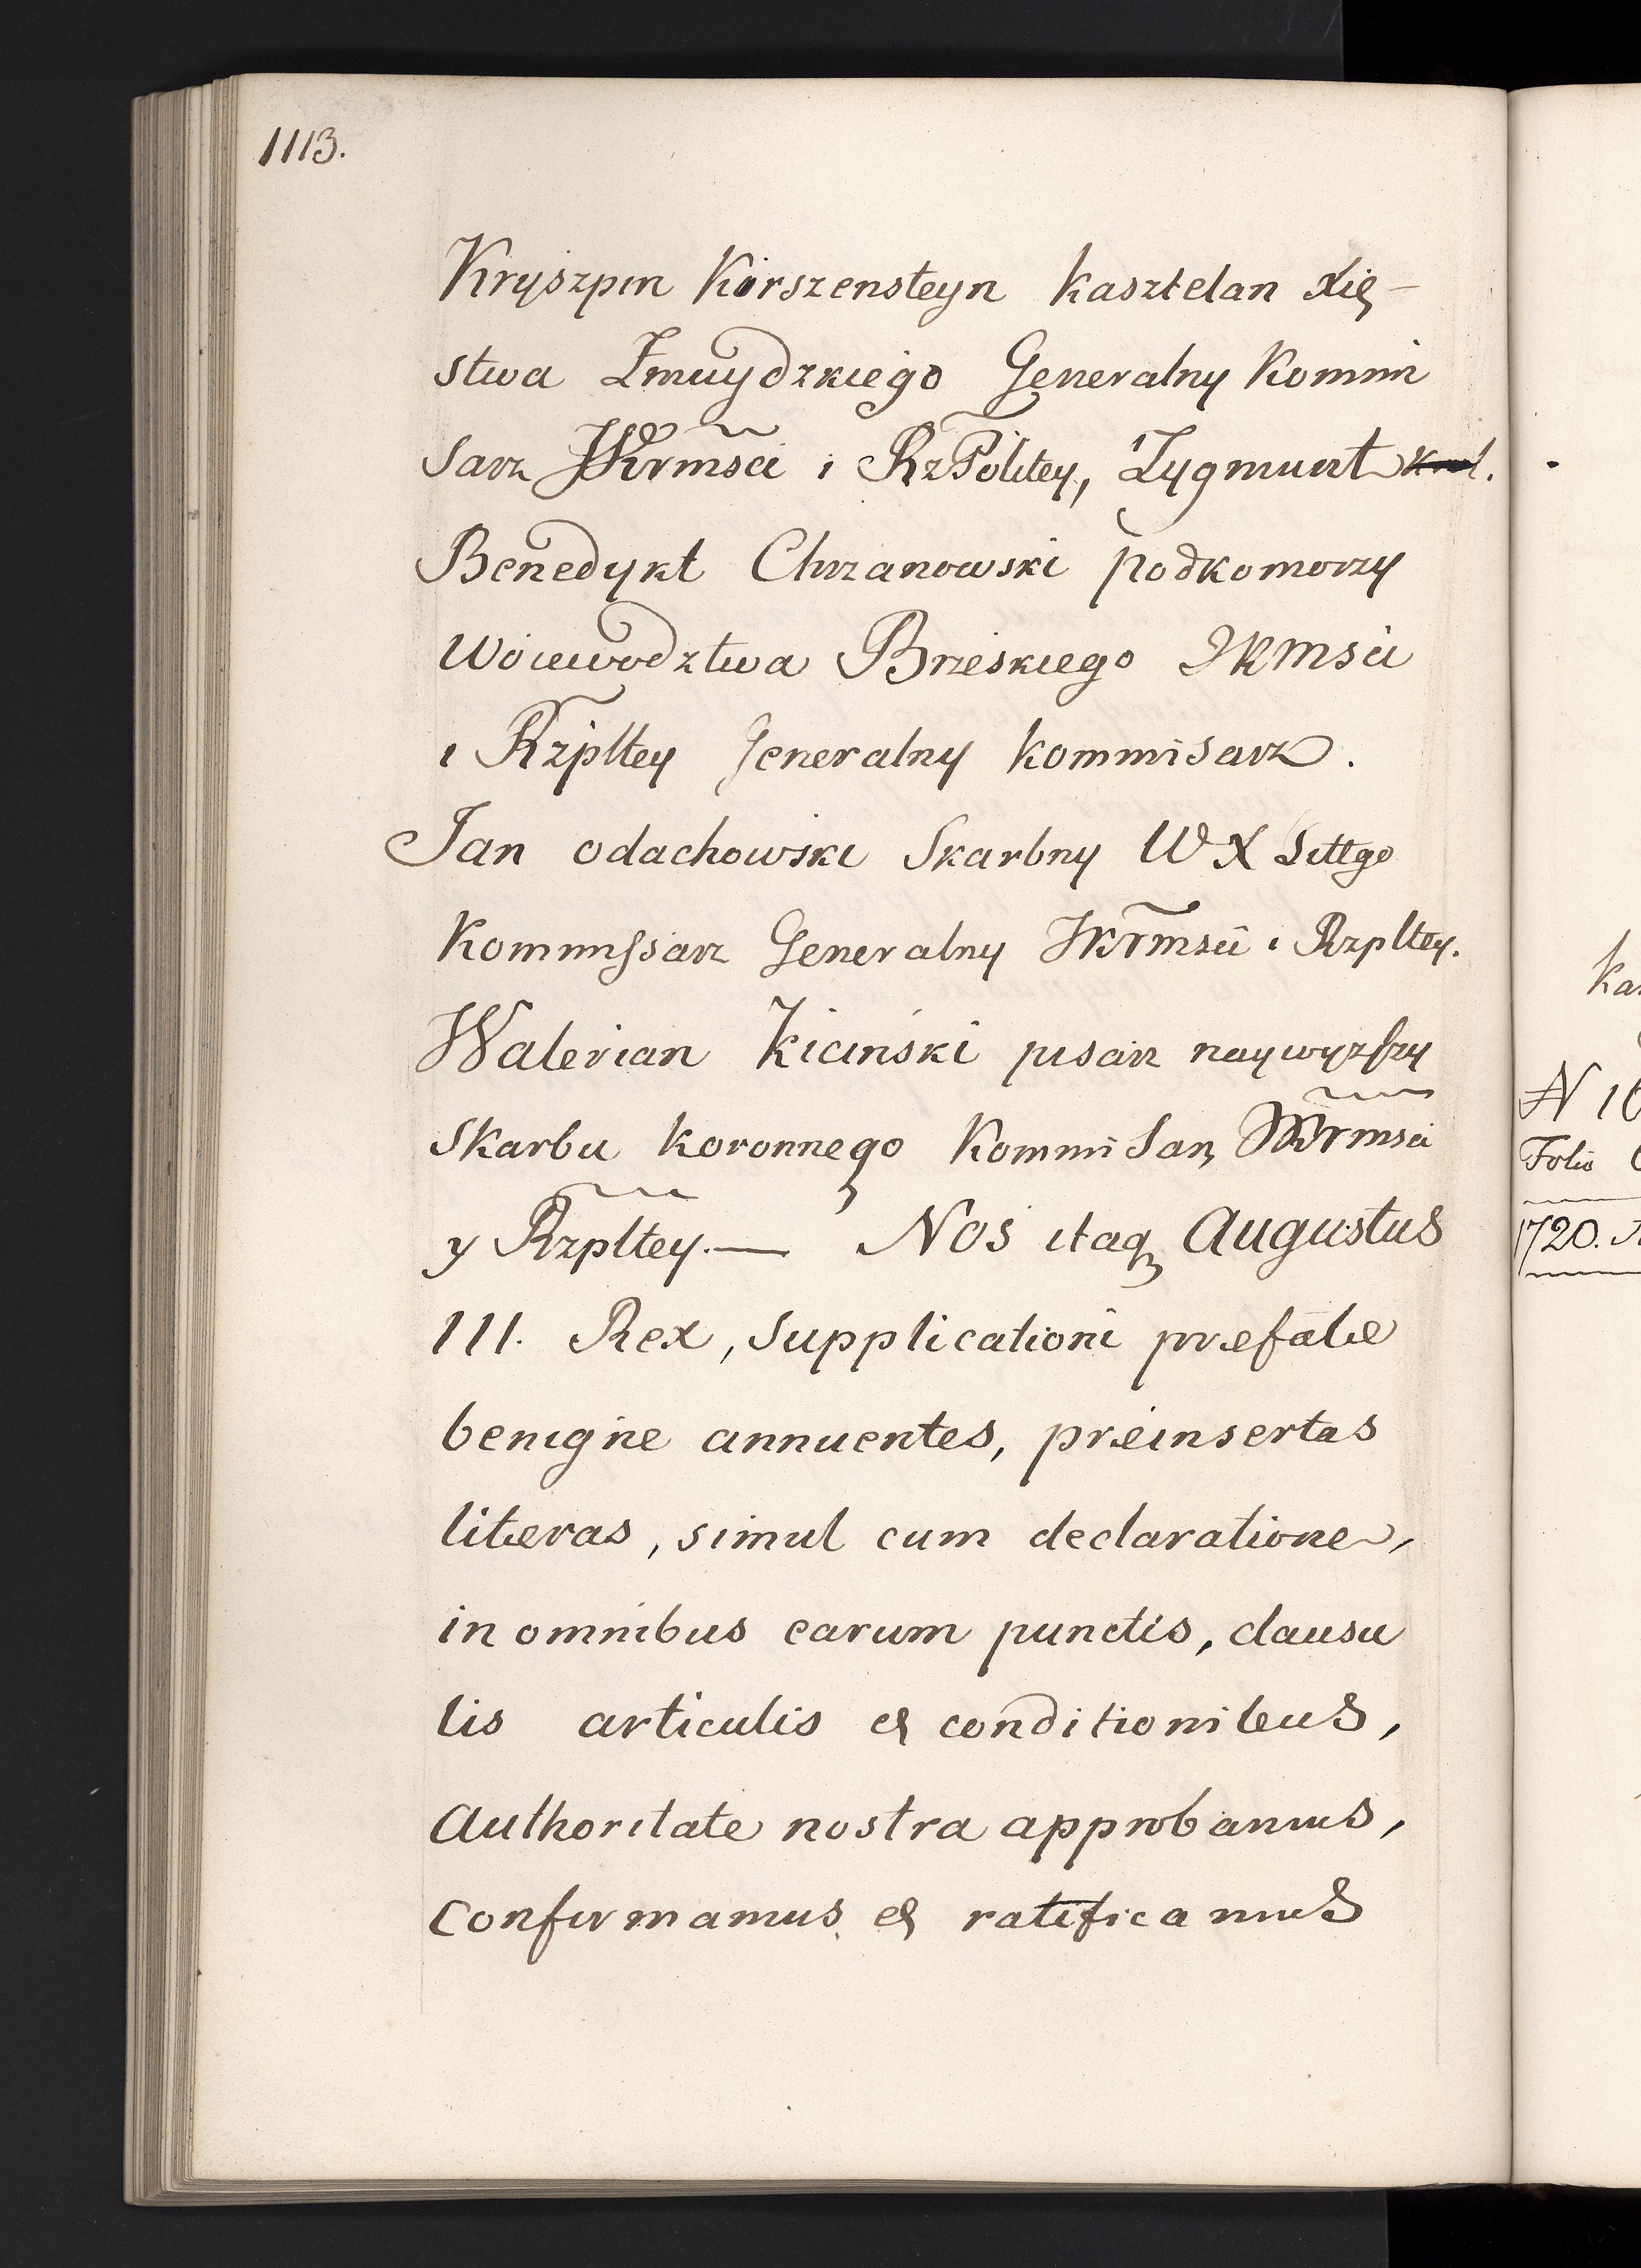 1113.
Kryszpin Kirszensteyn Kasztelan Xię-
stwa Zmuydzkiego Generalny Kommi
sarz JKrmsci i RzPoltey, Zygmunt
Benedykt Chrzanowski podkomorzy
Woiewodztwa Brzeskiego JKmsci
i Rzpltey Generalny kommisarz.
Jan odachowski Skarbny W X Littgo
Kommissarz Generalny JKrmsci i Rzpltey.
Walerian Kicinski pisarz naywyzszy
Skarbu koronnego Kommisarz JKrmsci
y Rzpltey.— Nos itaq Augustus
III. Rex, Supplicationi præfatæ
benigne annuentes, præinsertas
literas, simul cum declaratione,
in omnibus earum punctis, clausu
lis articulis et conditionibus,
Authoritate nostra approbamus,
Confirmamus, et ratificamus
Ka
N 16
Folio
1720.